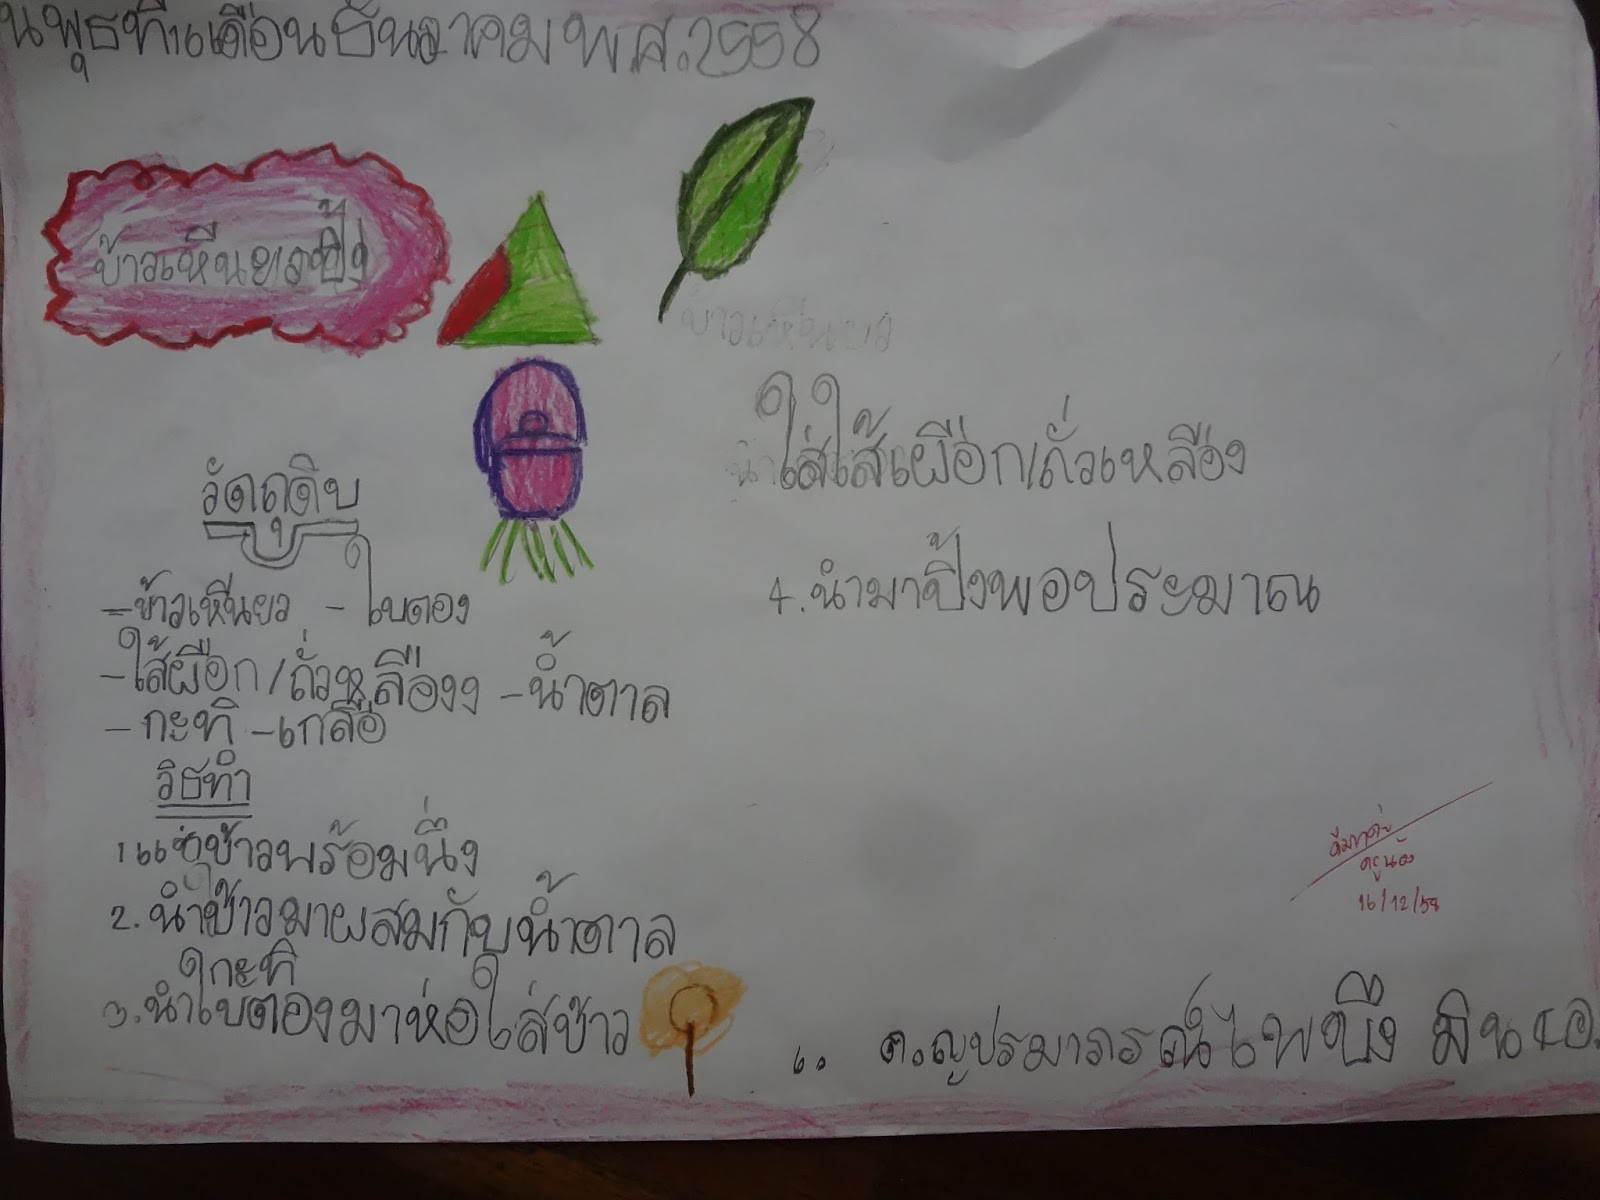 นพุธที่ เดือนธันวาคม พ.ศ.2558
ข้าวเหนียวปิ้ง
วัตถุดิบ
-ข้าวเหนียว - ใบตอง
-ใส้ผือก/ถั่วหลืองง -น้ำตาล
-กะทิ -เกลือ
วิธทำ
1แช่ข้าวพร้อมนึ่ง
2.นำข้าวมาผสมกับน้ำตาล
กะทิ
3.นำใบตองมาห่อใส่ข้าว
ข้าวเหนียว
ใส่ใส้เผือก/ถั่วเหลือง
4.นำมาปิ้งพอประมาณ
ครูน้อง
16/12/58
ด.ญ ประมาภรณ์ ไพบึง มิน